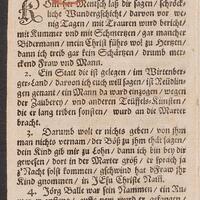 Kom her Mensch laß dir sagen/ schröck-
liche Wundergschicht/ darvon vor we-
nig Tagen/ mit Trauren wurd bericht/
mit Kummer und mit Schmertzen/ gar mancher
Bidermann/ mein Christ führs wol zu Hertzen/
dann ich treib gar kein Schärtzen/ drumb merck
eckend Fraw und Mann.
2. Ein Stadt die ist gelegen/ im Würtenber-
ger-Land/ darvon ich euch will sagen/ ist Reidlin-
gen genant/ ein Mann da ward eingzogen/ wegen
der Zauberey/ und anderen Teuffels-Künsten/
die er lang triben sonsten/ wurd an die Marter
bracht.
3. Darumb wolt er nichts geben/ von ihm
man nichts vernam/ der Böß zu ihm thät sagen/
dein Kind gib mir zu Lohn/ dann ich bin bey dir
gewesen/ dort in der Marter groß/ er sprach ja
s' Nacht solst kommen/ gschwind hat d' Fraw ihr
Kind gnommen/ in JEsu Christe Nam.
4. Jörg Valle war sein Nammen/ ein